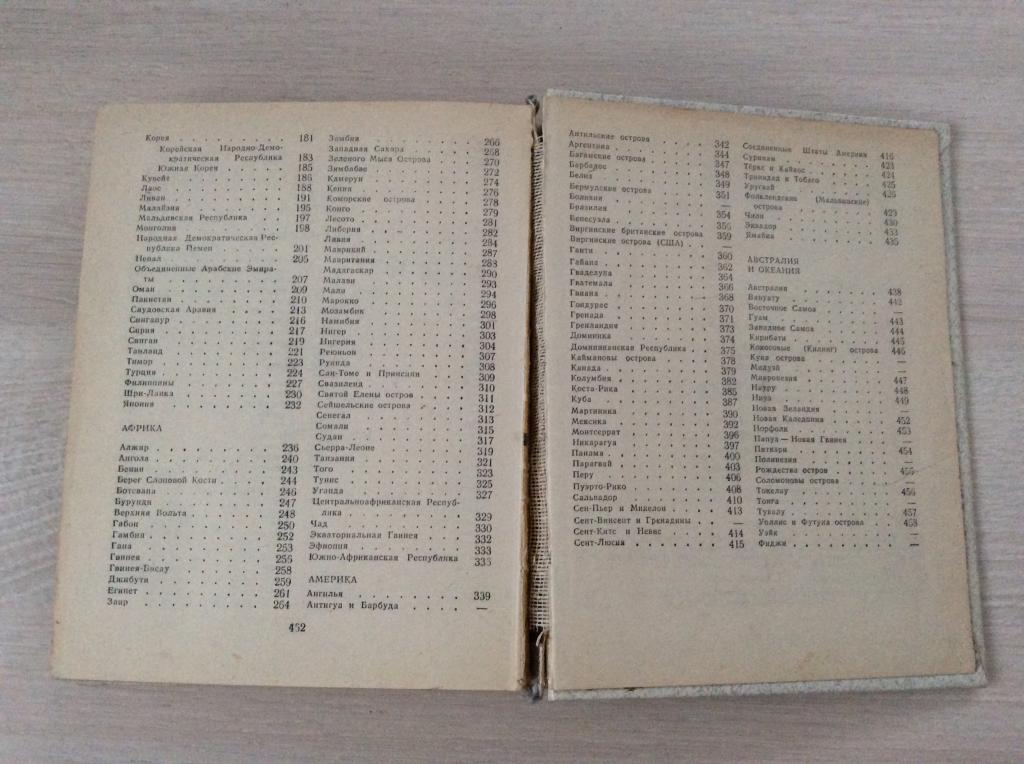 Корея 181
Корейская Народно-Демо-
кратическая Республика 183
Южная Корея 185
Кувейт 186
Лаос 188
Ливан 191
Малайзия 195
Мальдивская Республика 197
Монголия 198
Народная Демократическая Рес-
публика Йемен 201
Непал 205
Объединенные Арабские Эмира-
ты 207
Оман 209
Пакистан 210
Саудовская Аравия 213
Сингапур 216
Сирия 217
Сянган 219
Таиланд 221
Тимор 223
Турция 224
Филиппины 227
Шри-Ланка 230
Япония 232
АФРИКА
Алжир 236
Ангола 240
Бенин 243
Берег Слоновой Кости 244
Ботсвана 246
Бурунди 247
Верхняя Вольта 248
Габон 250
Гамбия 252
Гана 253
Гвинея 256
Гвинея-Бисау 258
Джибути 259
Египет 261
Заир 264
452
Замбия 266
Западная Сахара 268
Зеленого Мыса Острова 270
Зимбабве 272
Камерун 274
Кения 276
Коморские острова 278
Конго 279
Лесото 281
Либерия 282
Ливия 284
Маврикий 287
Мавритания 288
Мадагаскар 290
Малави 293
Мали 294
Марокко 296
Мозамбик 298
Намибия 301
Нигер 303
Нигерия 304
Реюньон 307
Руанда 308
Сан-Томе и Принсипи 309
Свазиленд 310
Святой Елены остров 311
Сейшельские острова 312
Сенегал 313
Сомали 315
Судан 317
Сьерра-Леоне 319
Танзания 321
Того 323
Тунис 325
Уганда 327
Центральноафриканская Респуб-
лика 329
Чад 330
Экваториальная Гвинея 332
Эфиопия 333
Южно-Африканская Республика 335
АМЕРИКА
Ангилья 339
Антигуа и Барбуда —
Антильские острова 342
Аргентина 344
Багамские острова 347
Барбадос 348
Белиз 349
Бермудские острова 351
Боливия
Бразилия 354
Венесуэла 356
Виргинские британские острова 359
Виргинские острова (США) —
Гаити 360
Гайана 362
Гваделупа 364
Гватемала 366
Гвиана 368
Гондурас 370
Гренада 371
Гренландия 373
Доминика 374
Доминиканская Республика 375
Каймановы острова 378
Канада 379
Колумбия 382
Коста-Рика 385
Куба 387
Мартиника 390
Мексика 392
Монтсеррат 396
Никарагуа 397
Панама 400
Парагвай 403
Перу 406
Пуэрто-Рико 408
Сальвадор 410
Сен-Пьер и Микелон 413
Сент-Винсент и Гренадины —
Сент-Китс и Невис 414
Сент-Люсия 415
Соединенные Штаты Америки 416
Суринам 423
Тёркс и Кайкос 424
Тринидад и Тобаго 425
Уругвай 426
Фолклендские (Мальвинские)
острова 429
Чили 430
Эквадор 433
Ямайка 435
АВСТРАЛИЯ
И ОКЕАНИЯ
Австралия 438
Вануату 442
Восточное Самоа —
Гуам 443
Западное Самоа 444
Кирибати 445
Кокосовые (Килинг) острова 446
Кука острова —
Мидуэй —
Микронезия 447
Науру 448
Ниуэ 449
Новая Зеландия —
Новая Каледония 452
Норфолк 453
Папуа — Новая Гвинея —
Питкэрн 454
Полинезия —
Рождества остров
Соломоновы острова —
Токелау 456
Тонга —
Тувалу 457
Уоллис и Футуна острова 458
Уэйк —
Фиджи —